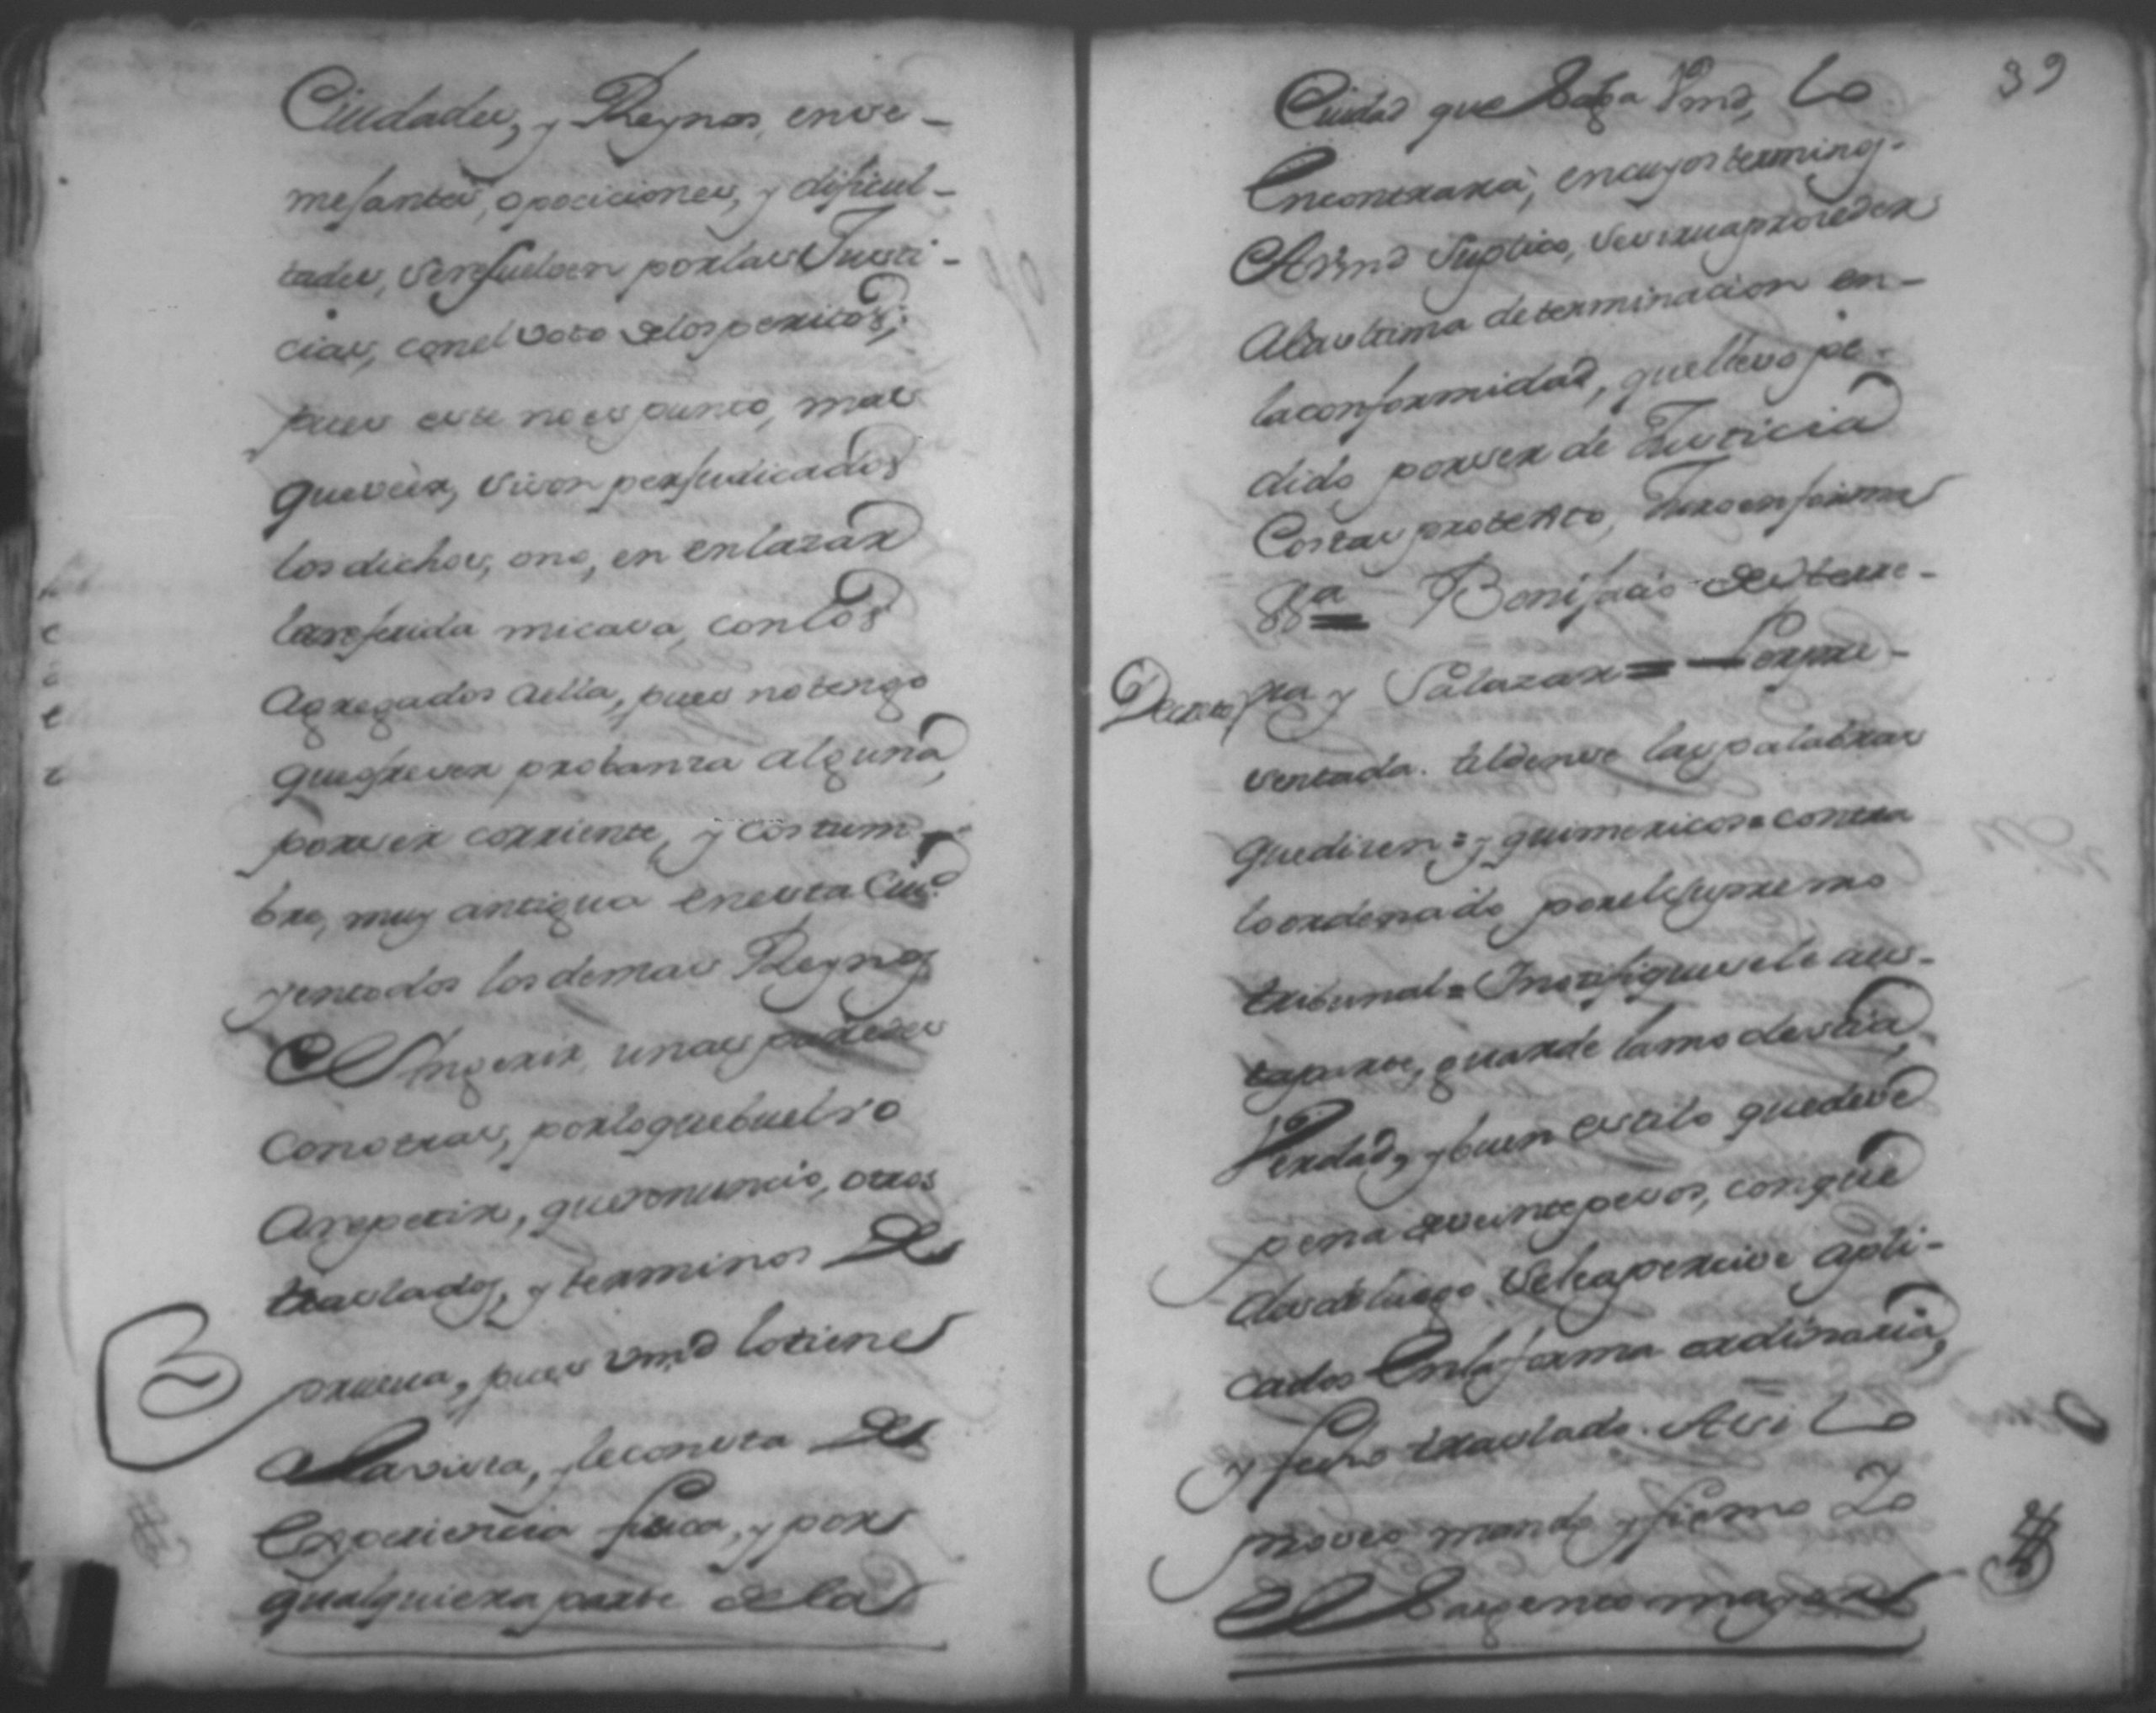 Ciudades, y Reynos, en se-
mejantes, opociciones, y dificul-
tades, se resuelven por las Justi-
cias, con el voto de los peritos;
pues este no es punto, mas
que ver, si son perjudicados
los dichos, o no, en enlazar
la referida mi casa, con los
agregados a ella, pues no tengo
que ofrecer probanza alguna,
por ser corriente, y costum-
bre, muy antigua en esta Ciud.
y en todos los demas Reynos
el Ingerir, unas paredes
con otras, por lo que buelvo
a repetir, que renuncio, otros
traslados, y terminos de
prueua, pues Vmd lo tiene
a la vista, y le consta de
Experiencia fisica, y por
qualquiera parte de la
39
Ciudad que salga Vmd, lo
Encontrará, en cuyos terminos.
A Vmd Suplico, se sirua proceder
a la ultima determinacion en
la conformidad, que llevo pe-
dido por ser de Justicia
Costas protexto, Juro en forma
&a = Bonifacio de Herre-
Decreto
ra y Salazar = Por pre-
sentada. tildense las palabras
que dicen = y quimericos = contra
lo ordenado por el supremo
tribunal = Y notifiquesele a es-
ta parte, guarde la modestia,
Verdad, y buen estilo que deve
pena de veinte pesos, con que
desde luego se le apercive apli-
cados En la forma ordinaria,
y fecho traslado. Asi lo
proveo mando y firmo Yo
el Sargento mayor